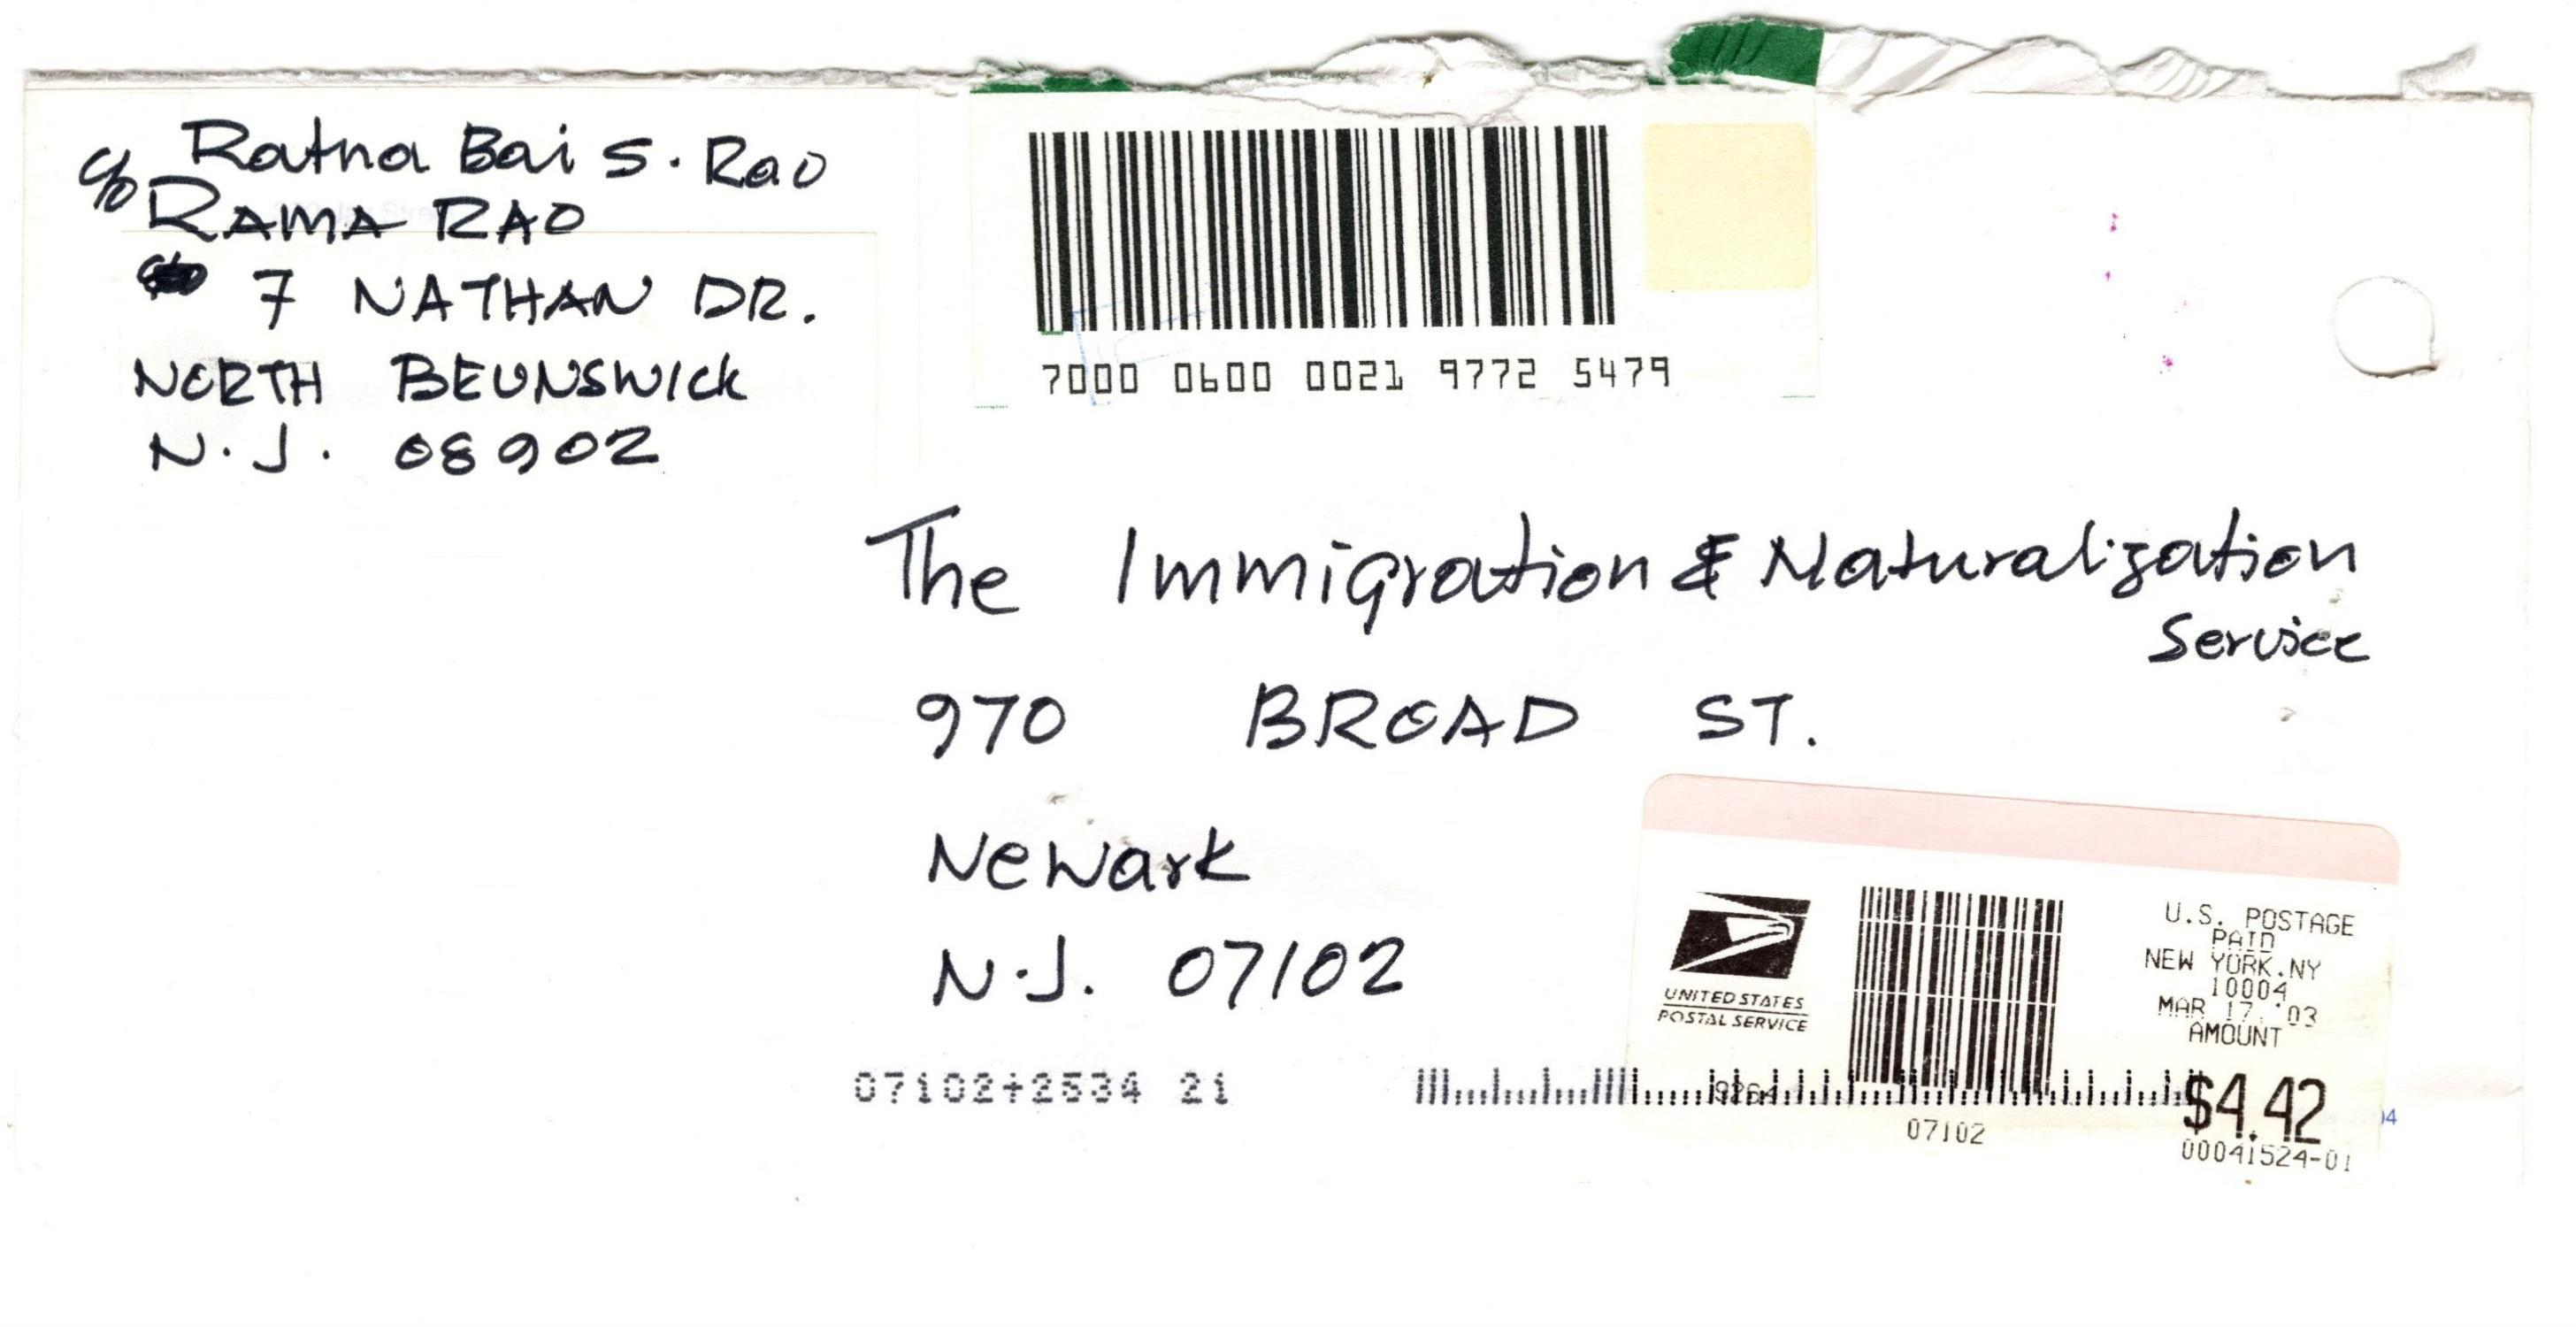 Ratna Bai S. Rao
c/o RAMA RAO
7 NATHAN DR.
NORTH BEUNSWICK
N.J. 08902
7000 0600 0021 9772 5479
The Immigration & Naturalization
Service
970 BROAD ST.
Newark
N.J. 07102
UNITED STATES
POSTAL SERVICE
U.S. POSTAGE
PAID
NEW YORK.NY
10004
MAR 17.'03
AMOUNT
$4.42
00041524-01
07102
07102+2534 21